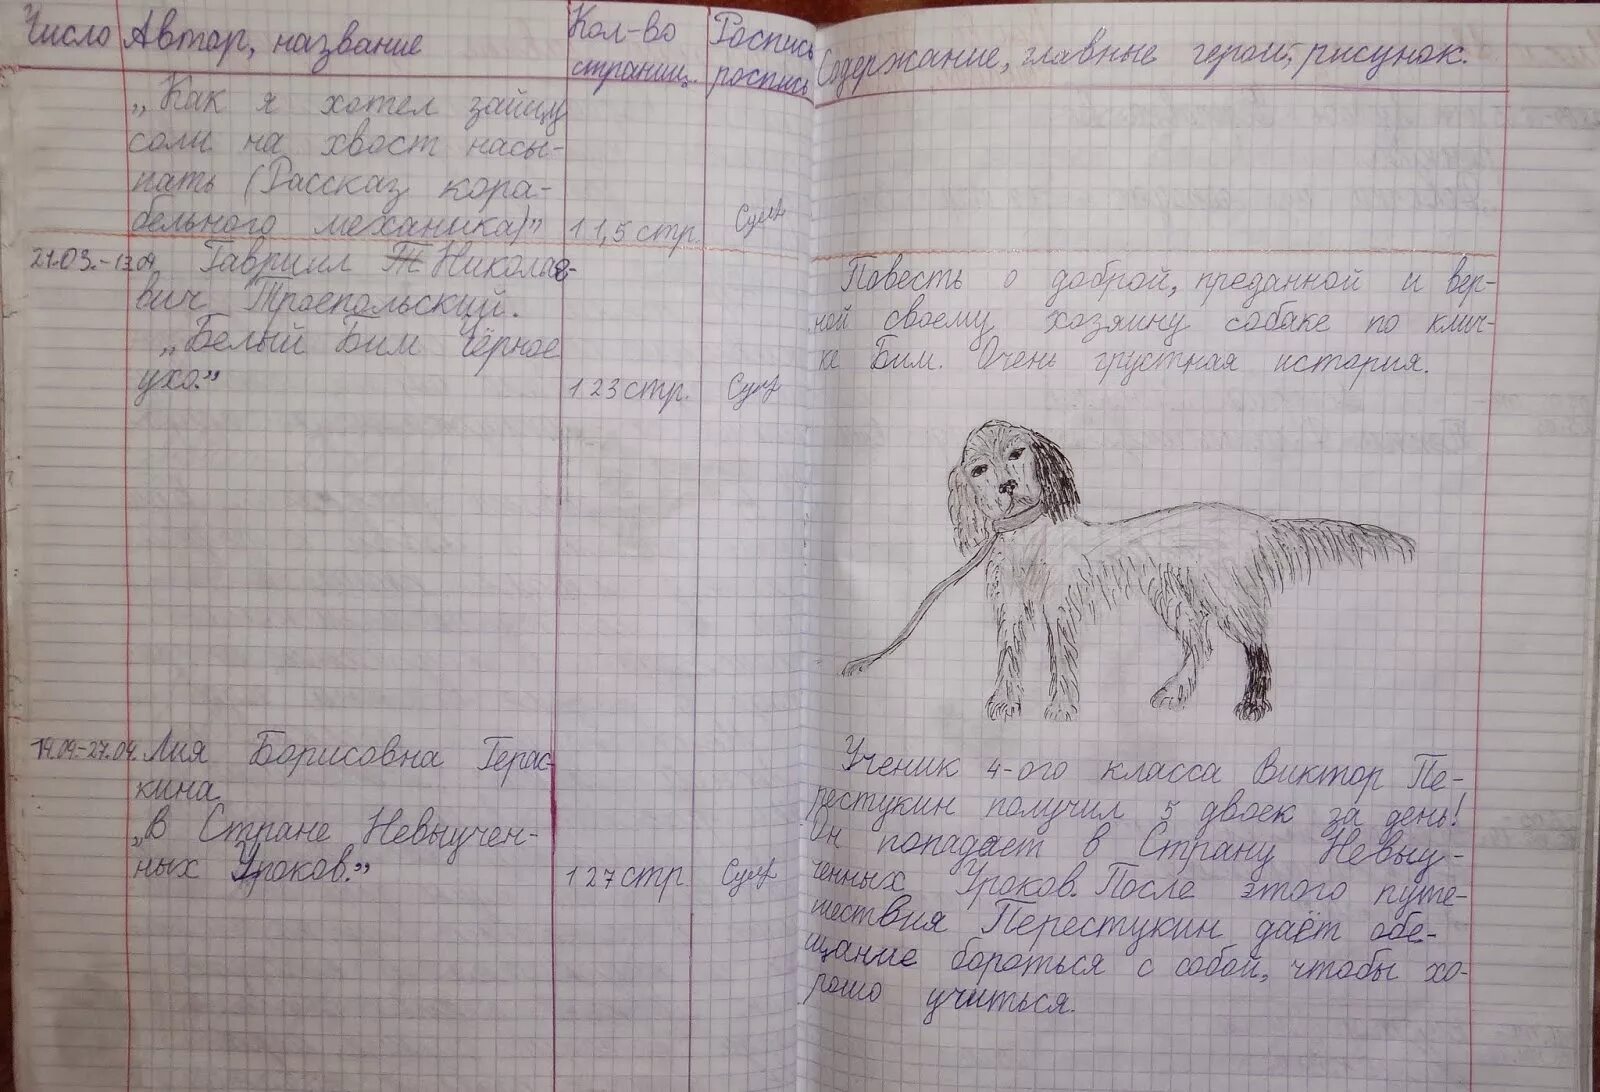 Число
Автор, название
Кол-во
страниц.
Роспись
роспись
Содержание, главные герои, рисунок.
„Как я хотел зайцу
соли на хвост насы-
пать (Рассказ кора-
бельного механика)”
11,5 стр.
21.03.-13.04
Гавриил Николае-
вич Троепольский.
„Белый Бим Чёрное
ухо.”
123 стр.
Повесть о доброй, преданной и вер-
ной своему хозяину собаке по клич-
ке Бим. Очень грустная история.
14.04.-27.04.
Лия Борисовна Герас-
кина
„В Стране Невыучен-
ных Уроков.”
127 стр
Ученик 4-ого класса Виктор Пе-
рестукин получил 5 двоек за день!
Он попадает в Страну Невыу-
ченных Уроков. После этого путе-
шествия Перестукин даёт обе-
щание бороться с собой, чтобы хо-
рошо учиться.